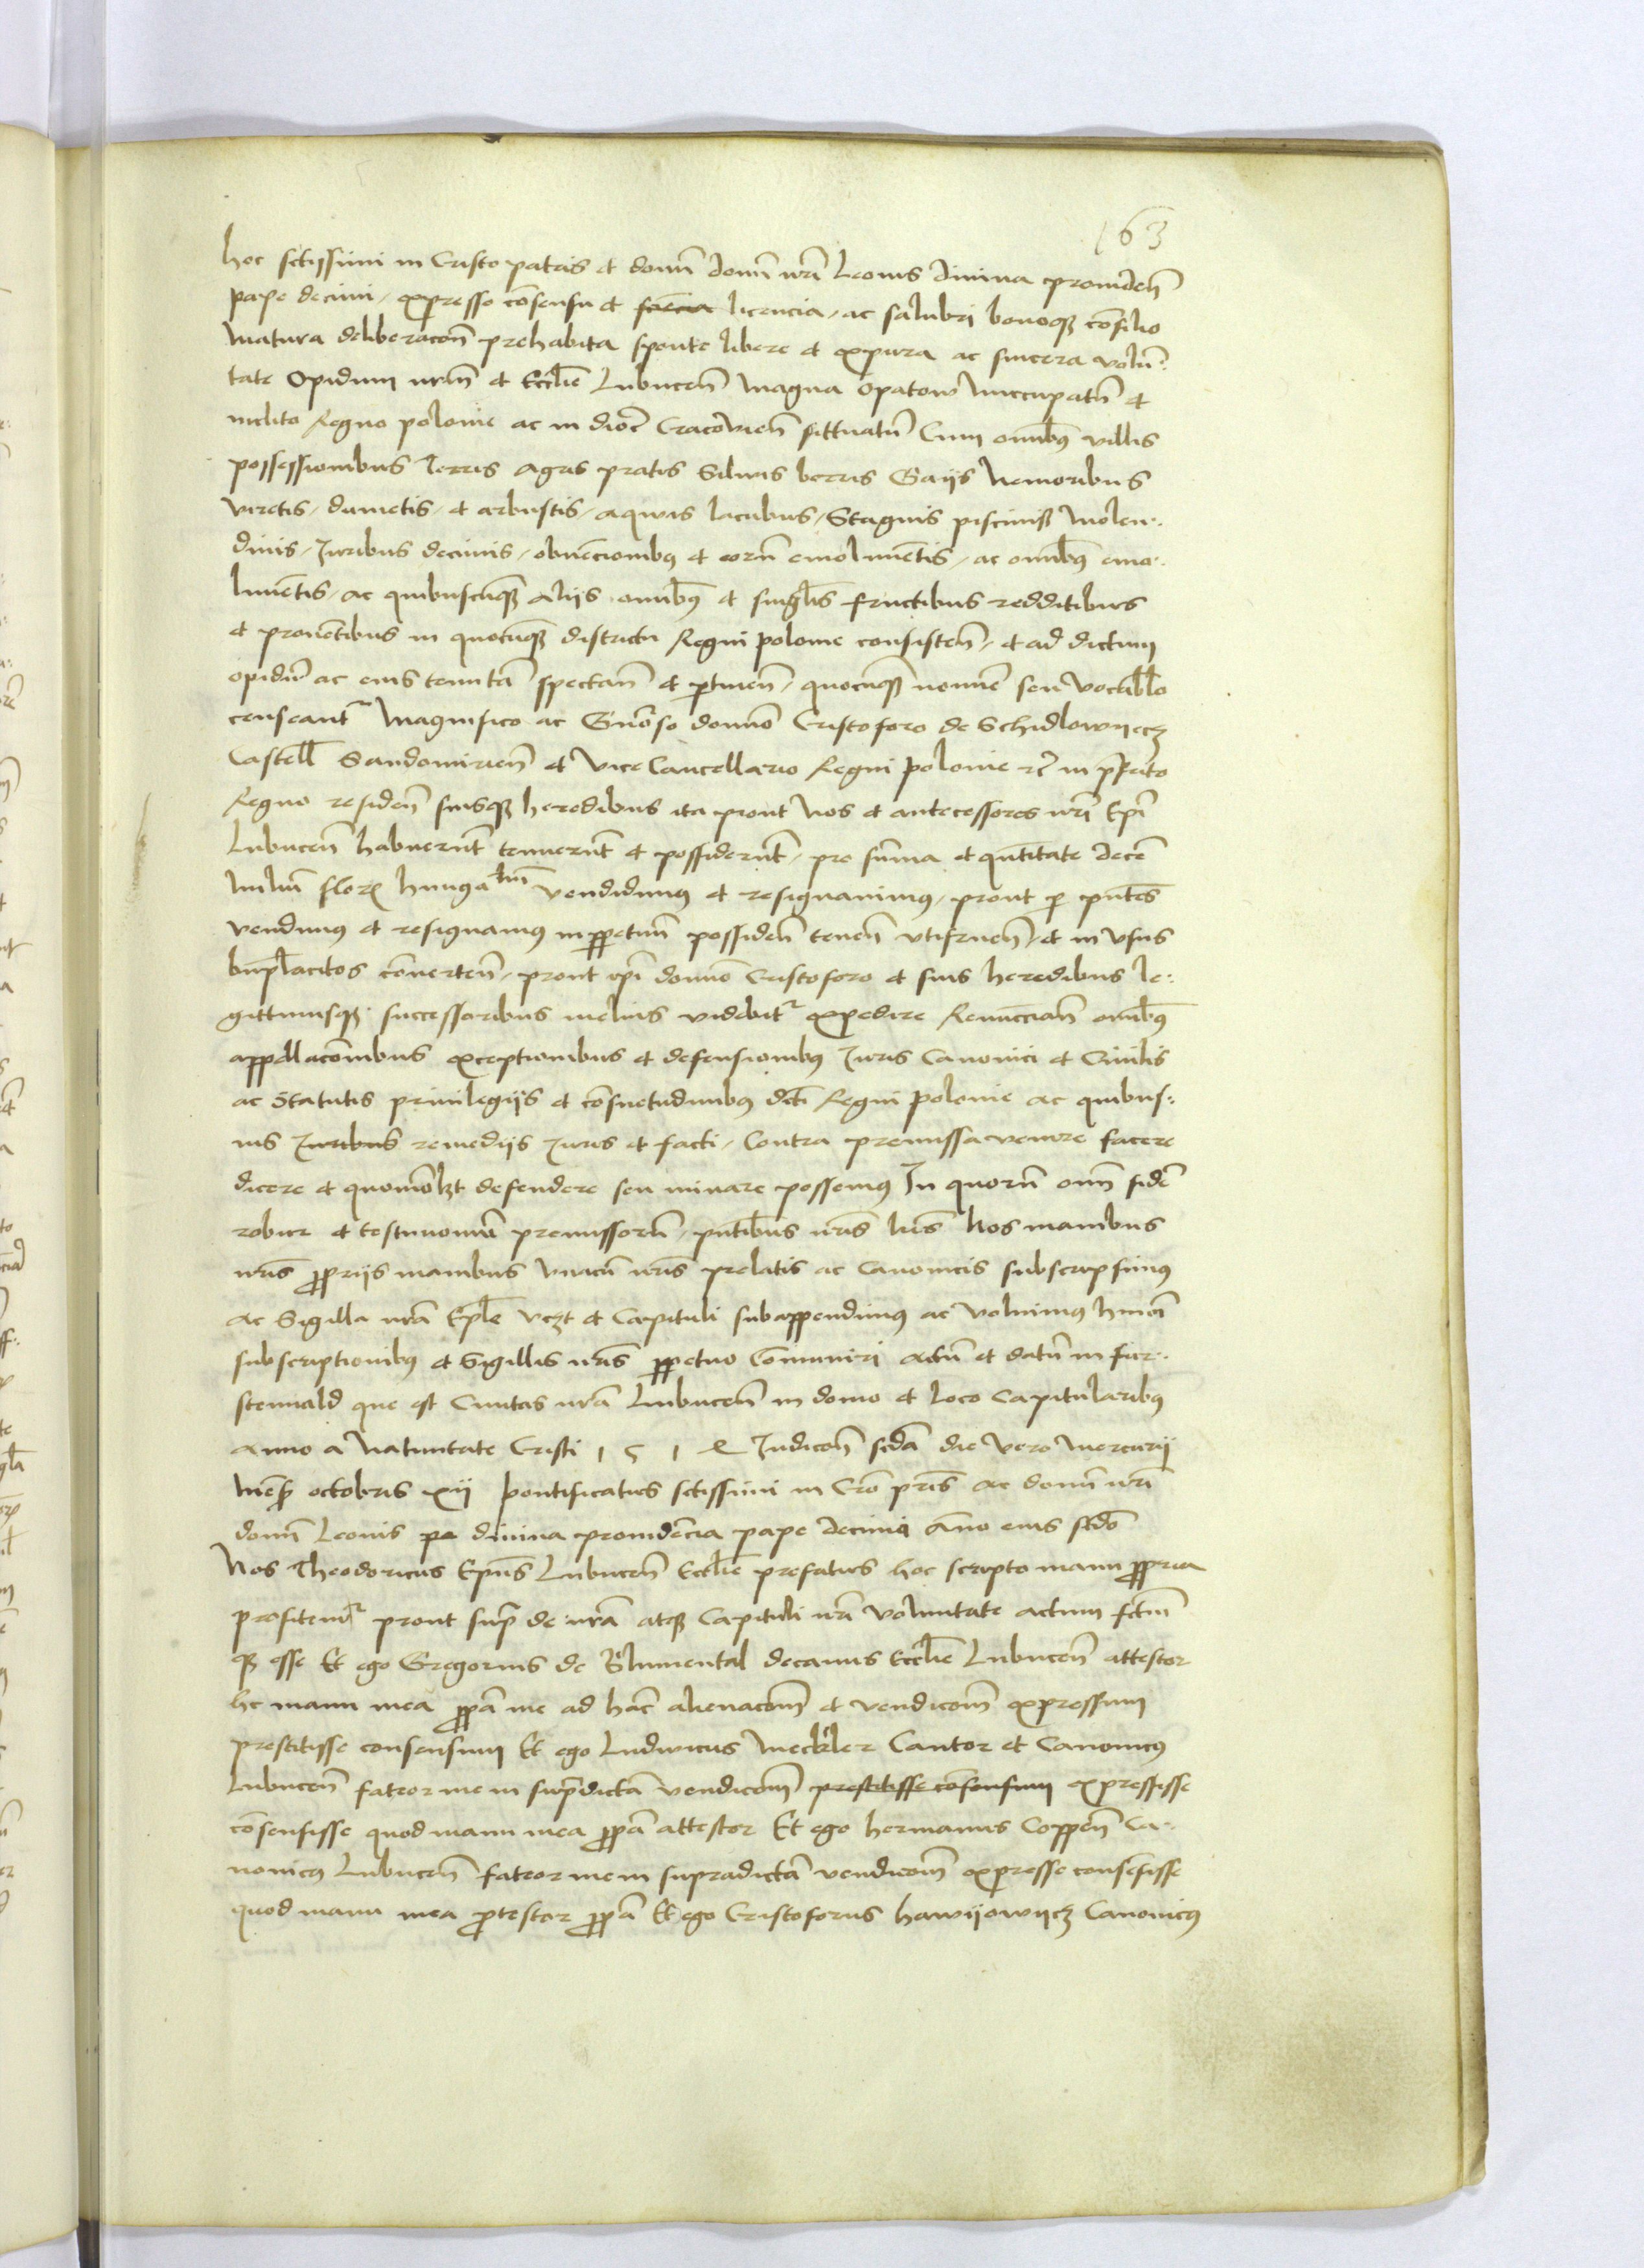 163
hoc sctissimi in Cristo patris et domī domī nrī Leonis divina providen̄
pape decimi / expresso cōsensu et licencia / ac salubri bonoqȝ cōsilio
matura deliberacōn̄ prehabita sponte libere et ex pura ac sincera volū:
tate Opidum nrm̄ et Eccl̄ie Lubucen̄ magna Opatow nuccupatū et
inclito Regno polonie ac in dioc̄ Cracovien̄ sittuatū Cum omībȝ villis
possessionibus Terris Agris pratis Silvis berris Gaijs Nemoribus
viretis / dumetis / et arbustis / aquis lacubus / Stagnis piscinis Molen:
dinis / Juribus decimis / obvēcionibȝ et eorū emolimētis / ac omībȝ emo:
limētis / ac quibuscūqȝ alijs omībȝ et singl̄is fructibus redditibus
et provētibus in quocūqȝ districtu Regni polonie consisten̄ / et ad dictum
opidū ac eius tenutā spectan̄ et ptinen̄ / quocūqȝ nomīe seu vocabl̄o
censeant̄ Magnifico ac Gn̄oso domīo Cristoforo de Schidlowyecz
Castell̄ Sandomirien̄ et Vice Cancellario Regni polonie rc̄ in p̄fato
Regno residen̄ suisqȝ heredibus ita prout Nos et antecessores nrī Epī
Lubucen̄ habuerūt tenuerūt et possiderūt / pro sūma et qn̄titate decē
milliū florȝ hungalium vendidimȝ et resignavimus / prout p pn̄tes
vendimȝ et resignamus in ppetuū possiden̄ tenen̄ utifruen̄ / et in usus
bn̄placitos cōverten̄ / prout ipī domīo Cristoforo et suis heredibus le:
gittimisqȝ successoribus melius videbit̄ expedire Renuccian̄ omībȝ
appellacōnibus exceptionibus et defensionibȝ Juris Canonici et Civilis
ac Statutis privilegijs et cōsuetudinibȝ dc̄ti Regni polonie ac quibus:
vis Juribus remedijs Juris et facti / Contra premissa venire facere
dicere et quomōlȝt defendere seu iuvare possemȝ In quorū om̄ fidē
robur et testimoniū premissorū / pn̄tibus nr̄is lr̄is Nos manibus
nr̄is pprijs manibus unacū nr̄is prelatis ac Canonicis subscripsimus
ac Sigilla nr̄a Ep̄le vcȝt et Capituli subappendimus ac volumus hmōi
subscriptionibȝ et Sigillis nr̄is ppetuo Comuniri Actū et datū in fur:
stenvald que est Civitas nr̄a Lubucen̄ in domo et loco Capitularibȝ
Anno a Nativitate Cristi 1 5 1 4 Indicōn̄ scd̄a die vero Mercurij
mēsȝ octobris xij pontificatus sctissimi in Cr̄o pr̄is ac domī nrī
domī Leonis divina providēcia pape decimi Anō eius scd̄o
Nos Theodoricus Epūs Lubucen̄ Eccl̄ie prefatus hoc scripto manu ppria
profitemr̄ prout supra de nr̄a atqȝ Capituli nrī voluntate actum fctm̄
qȝ esse Et ego Gregorius de Blumental decanus Eccl̄ie Lubucen̄ attestor
hc manu mea ppā me ad hāc alienacōm̄ et vendicōm̄ expressum
prestitisse consensum Et ego Ludwicus Meckler Cantor et Canonicȝ
Lubucen̄ fateor me in supradictā vendicōm̄ prestitisse cōsensum expressisse
cōsensisse quod manu mea ppā attestor Et ego hermanus Coppen̄ Ca:
nonicȝ Lubucen̄ fateor me in supradictā vendicōm̄ expresse consēsisse
quod manu mea protestor ppā Et ego Cristoforus hawijowijcz Canonicȝ